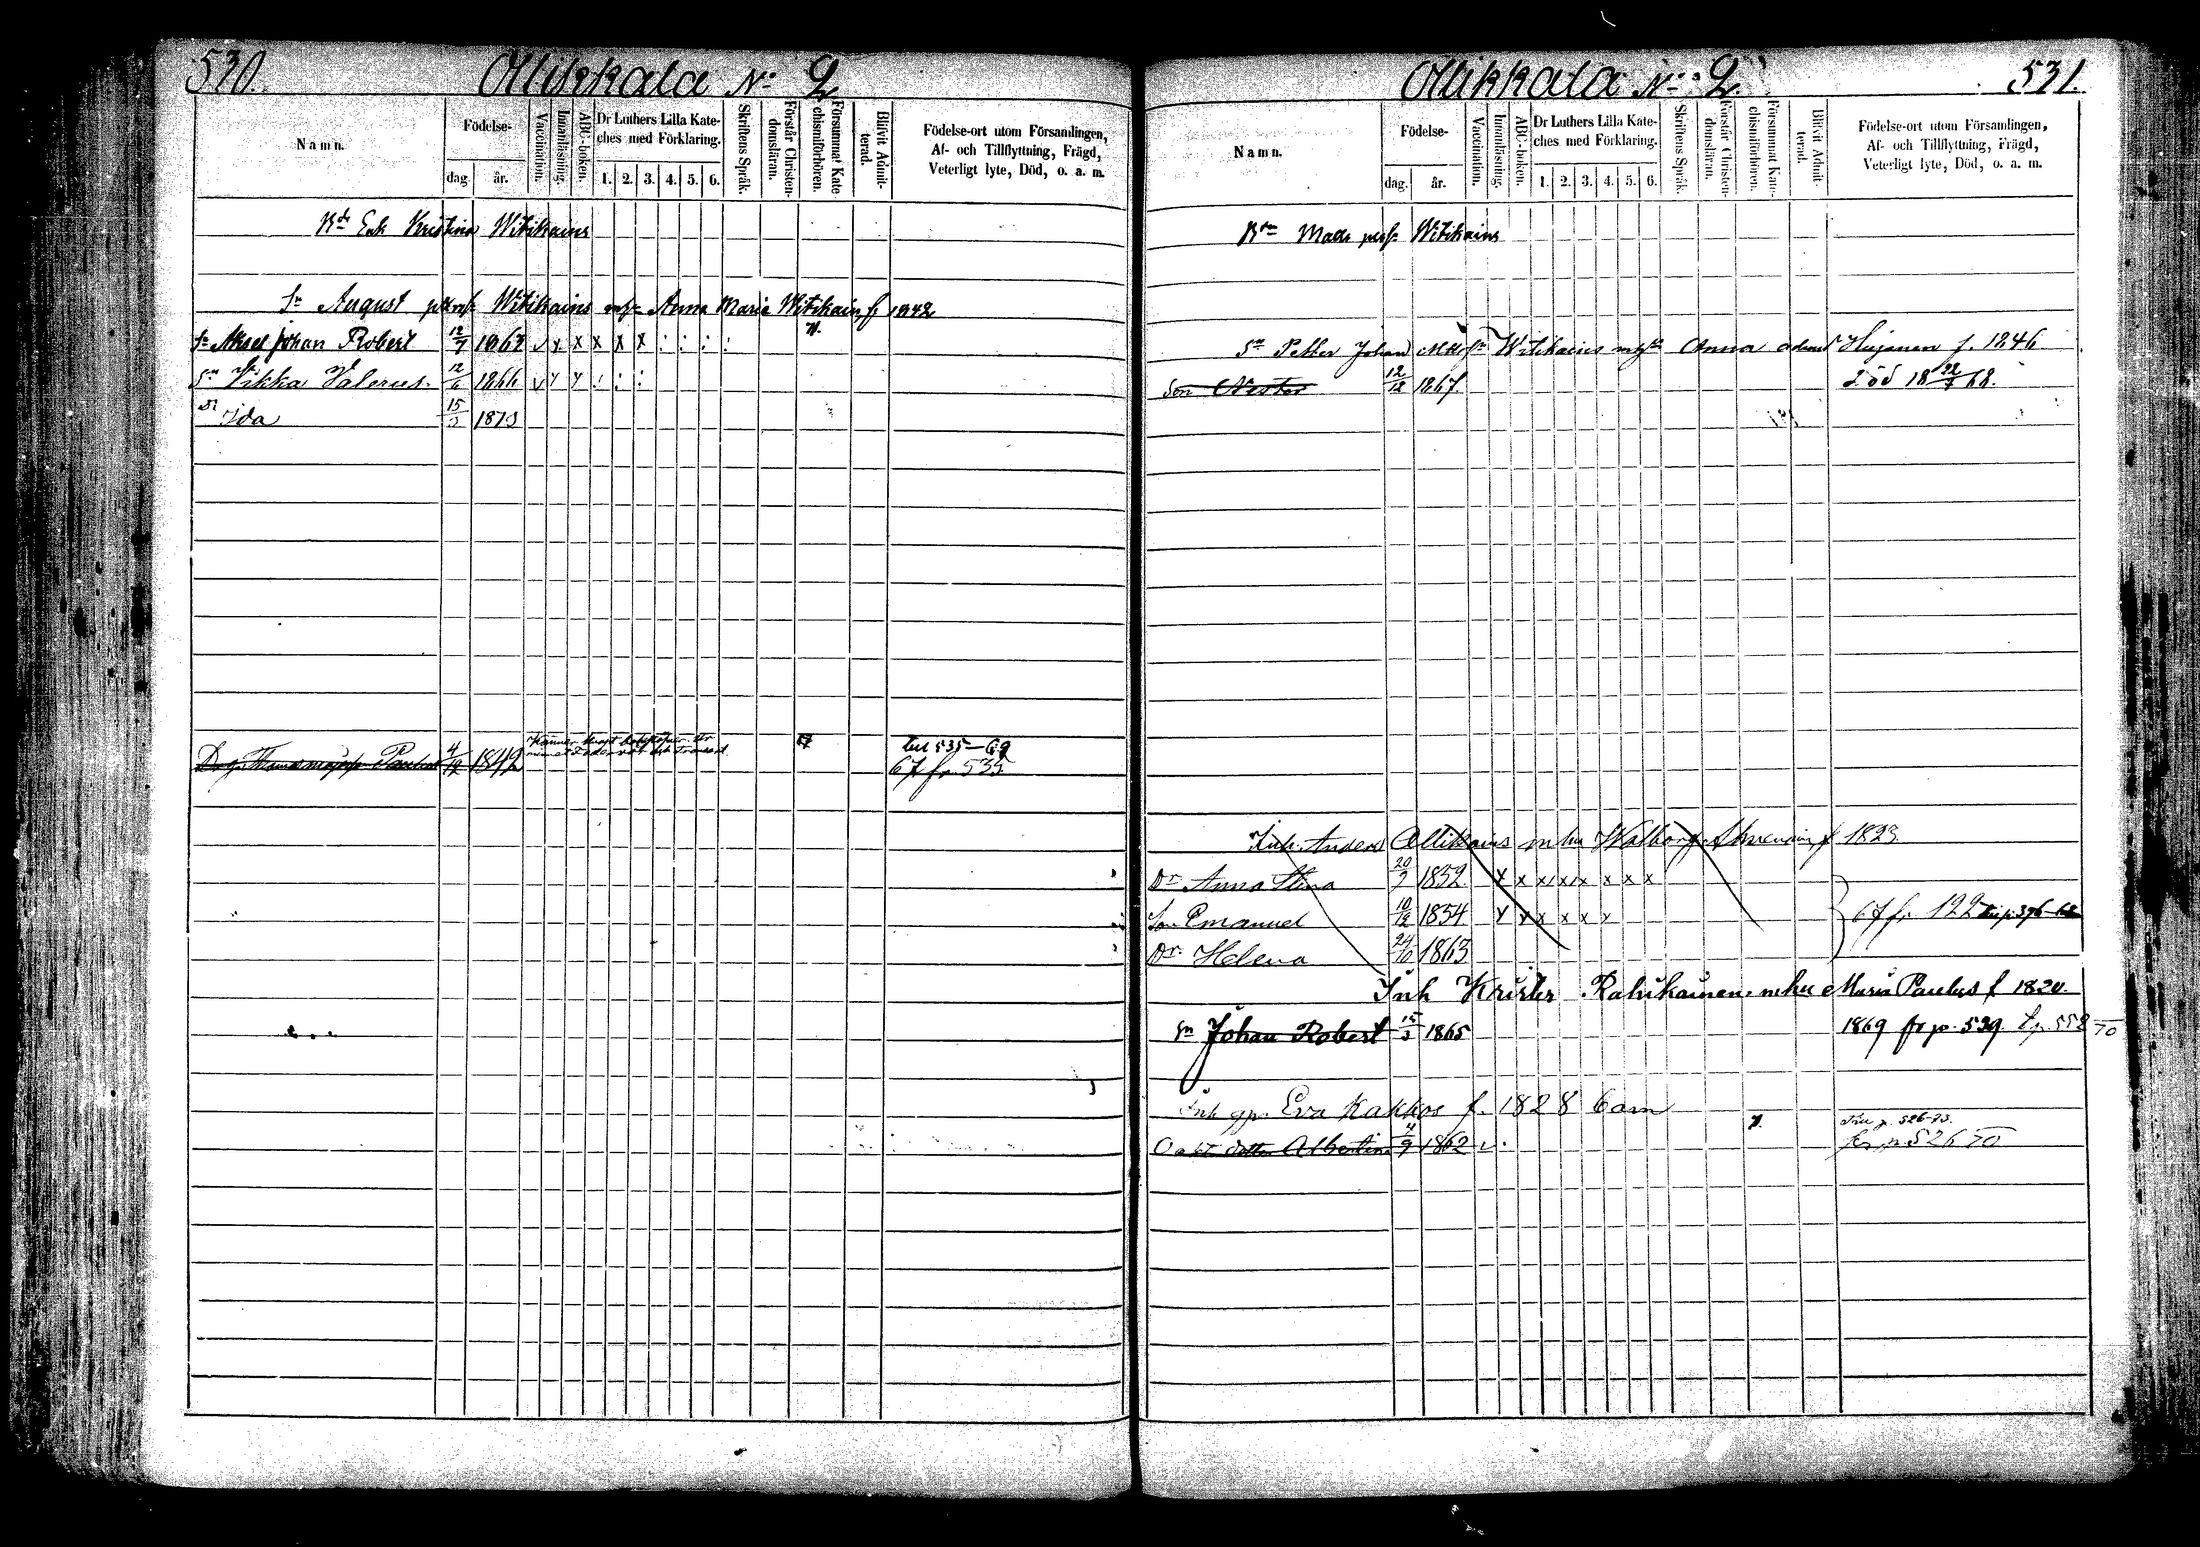 530. Ollikkala N:o 2
Namn.
Födelse-
dag.
år.
Vaccination.
Innanläsning.
ABC-boken.
Dr Luthers Lilla Kate-
ches med Förklaring.
1. 2. 3. 4. 5. 6.
Skriftens Språk.
Förstår Christen-
domsläran.
Försummat Kate-
chismiförhören.
Blifvit Admit-
terad.
Födelse-ort utom Församlingen,
Af- och Tillflyttning, Frägd,
Veterligt lyte, Död, o. a. m.
Bde Enk Kristina Witikains
Sn August Witikains Anna Maria Witikain f. 1842
Sn Johan Robert 12/7 1862 v y x x x x : : : :
Sn Vikka Valerius. 12/6 1866 v y y : : :
Dr Ida 15/3 1873
4/12 1842
till 535–69
67 fr. 535
Ollikkala N:o 2. 531.
Namn.
Födelse-
dag.
år.
Vaccination.
Innanläsning.
ABC-boken.
Dr Luthers Lilla Kate-
ches med Förklaring.
1. 2. 3. 4. 5. 6.
Skriftens Språk.
Förstår Christen-
domsläran.
Försummat Kate-
chismiförhören.
Blifvit Admit-
terad.
Födelse-ort utom Församlingen,
Af- och Tillflyttning, Frägd,
Veterligt lyte, Död, o. a. m.
Bdn Mats Witikains
Sn Petter Johan Witikains Anna Hujanen f. 1846
Son Nestor 12/12 1867. Död 18 22/7 68.
Inh. Anders Ollikains m hu Walborg f 1823
Dr Anna Stina 20/7 1852 y x x x x x x x
Son Emanuel 10/12 1854 y y x x x y 67 fr. 122 till p. 376–68
Dr Helena 24/10 1863
Inh Krister Rahikainen m hu Maria Paulus f 1820.
Sn Johan Robert 15/3 1865 1869 fr p. 539. t.p. 558 70
Inh gp. Eva Kakkos f. 1828 barn
O äkt dotter Albertina 4/9 1862 v. 7. Till p. 526–73.
fr p. 526 70